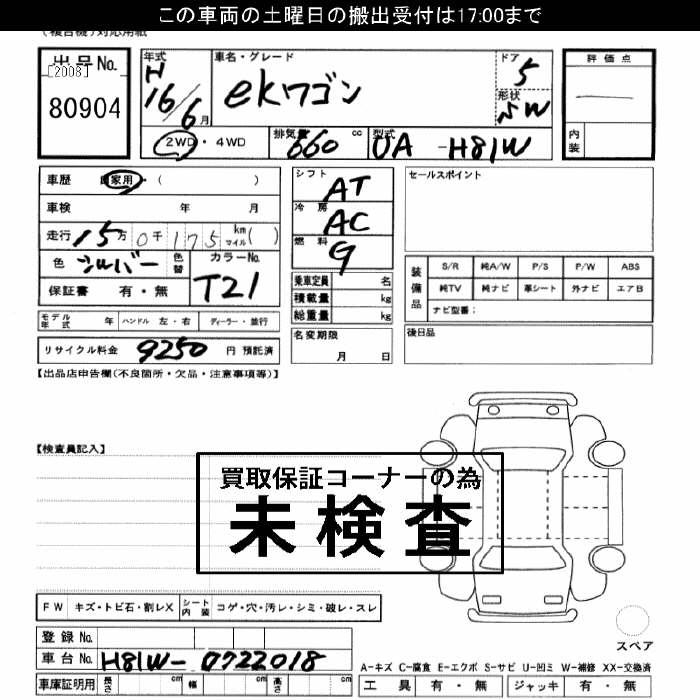 この車両の土曜日の搬出受付は17:00まで
出品No.
[2008]
80904
年式
H
16/6月
車名・グレード
ekワゴン
ドア
5
形状
SW
評価点
内装
2WD・4WD
排気量
660 cc
型式
UA -H81W
車歴 自家用・( )
車検 年 月
走行 15万0千175 km マイル( )
色 シルバー 色替
カラーNo.
T21
保証書 有・無
シフト AT
冷房 AC
燃料 G
乗車定員 名
積載量 kg
総重量 kg
セールスポイント
装備品
S/R 純A/W P/S P/W ABS
純TV 純ナビ 革シート 外ナビ エアB
ナビ型番:
モデル年式 年 ハンドル 左・右 ディーラー・並行
名変期限
月 日
後日品
リサイクル料金 9250 円 預託済
【出品店申告欄(不良箇所・欠品・注意事項等)】
【検査員記入】
買取保証コーナーの為
未検査
FW キズ・トビ石・割レX シート内装 コゲ・穴・汚レ・シミ・破レ・スレ
スペア
登録No.
車台No. H81W-0722018
車庫証明用 長さ cm 幅 cm 高さ cm
A-キズ C-腐食 E-エクボ S-サビ U-凹ミ W-補修 XX-交換済
工具 有・無 ジャッキ 有・無